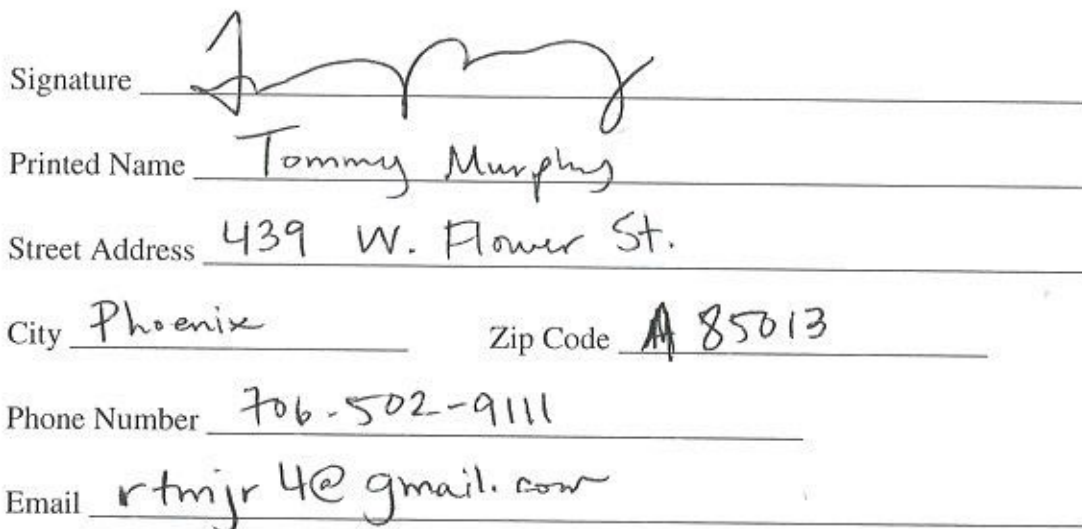 Signature
Printed Name Tommy Murphy
Street Address 439 W. Flower St.
City Phoenix Zip Code 85013
Phone Number 706-502-9111
Email rtmjr4@gmail.com